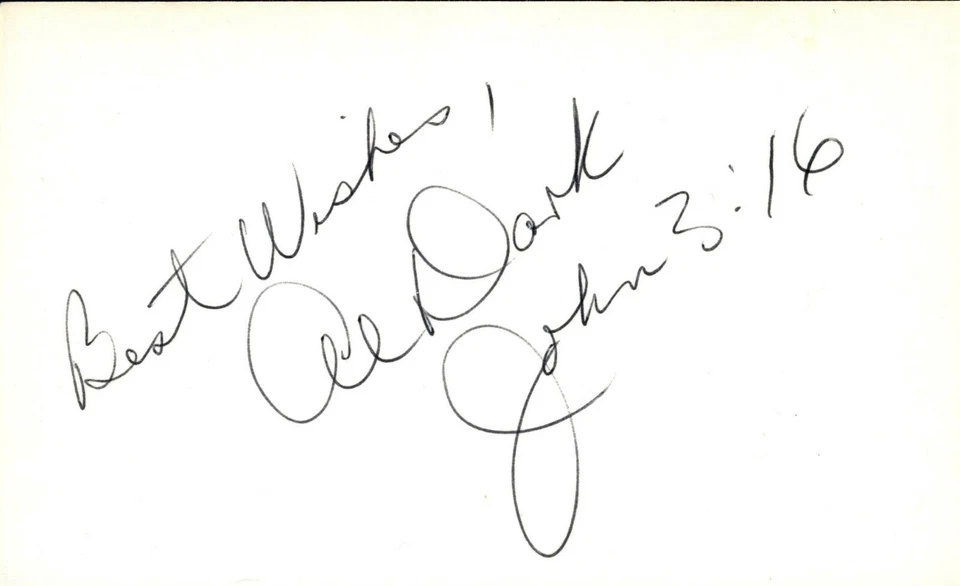 Best Wishes!
Al Dark
John 3:16